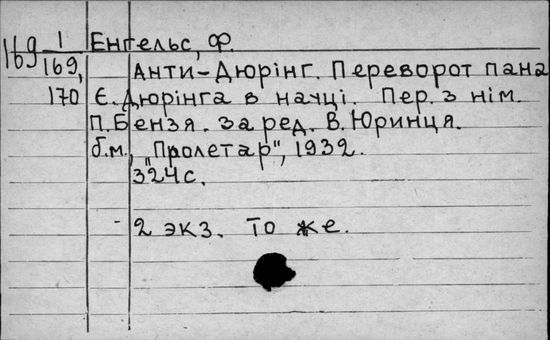 169 1 Енгельс, Ф.
169, Анти-Дюрінг. Переворот пана
170 Є. Дюрінга в начці. Пер. з нім.
П. Бензя. за ред. В. Юринця.
б.м., „Пролетар", 1932.
324 с.
- 2 экз. То же.